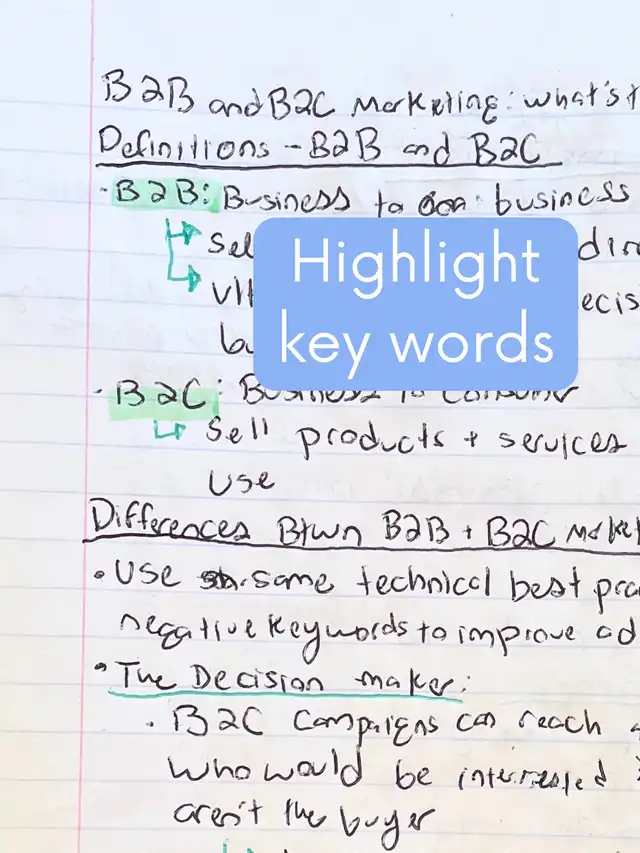 B2B and B2C Marketing: what's t
Definitions - B2B and B2C
· B2B: Business to business
Sel
dir
Highlight
key words
ult
ecis
bu
· B2C: Business to Consumer
↳ Sell products + services
use
Differences Btwn B2B + B2C Market
• Use same technical best prac
negative keywords to improve ad
• The Decision maker:
· B2C Campaigns can reach a
who would be interested
aren't the buyer